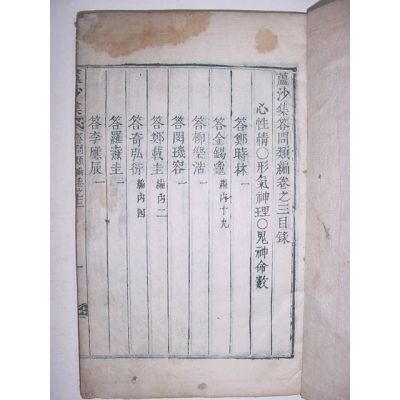 蘆沙集答問類編卷之三目錄
心性情○形氣神理○鬼神命數
答鄭時林一
答金錫龜編內十九
答柳樂浩一
答閔璣容一
答鄭載圭編內二
答奇弘衍編內四
答羅燾圭一
答李應辰一
蘆沙集 答問類編卷之三 一